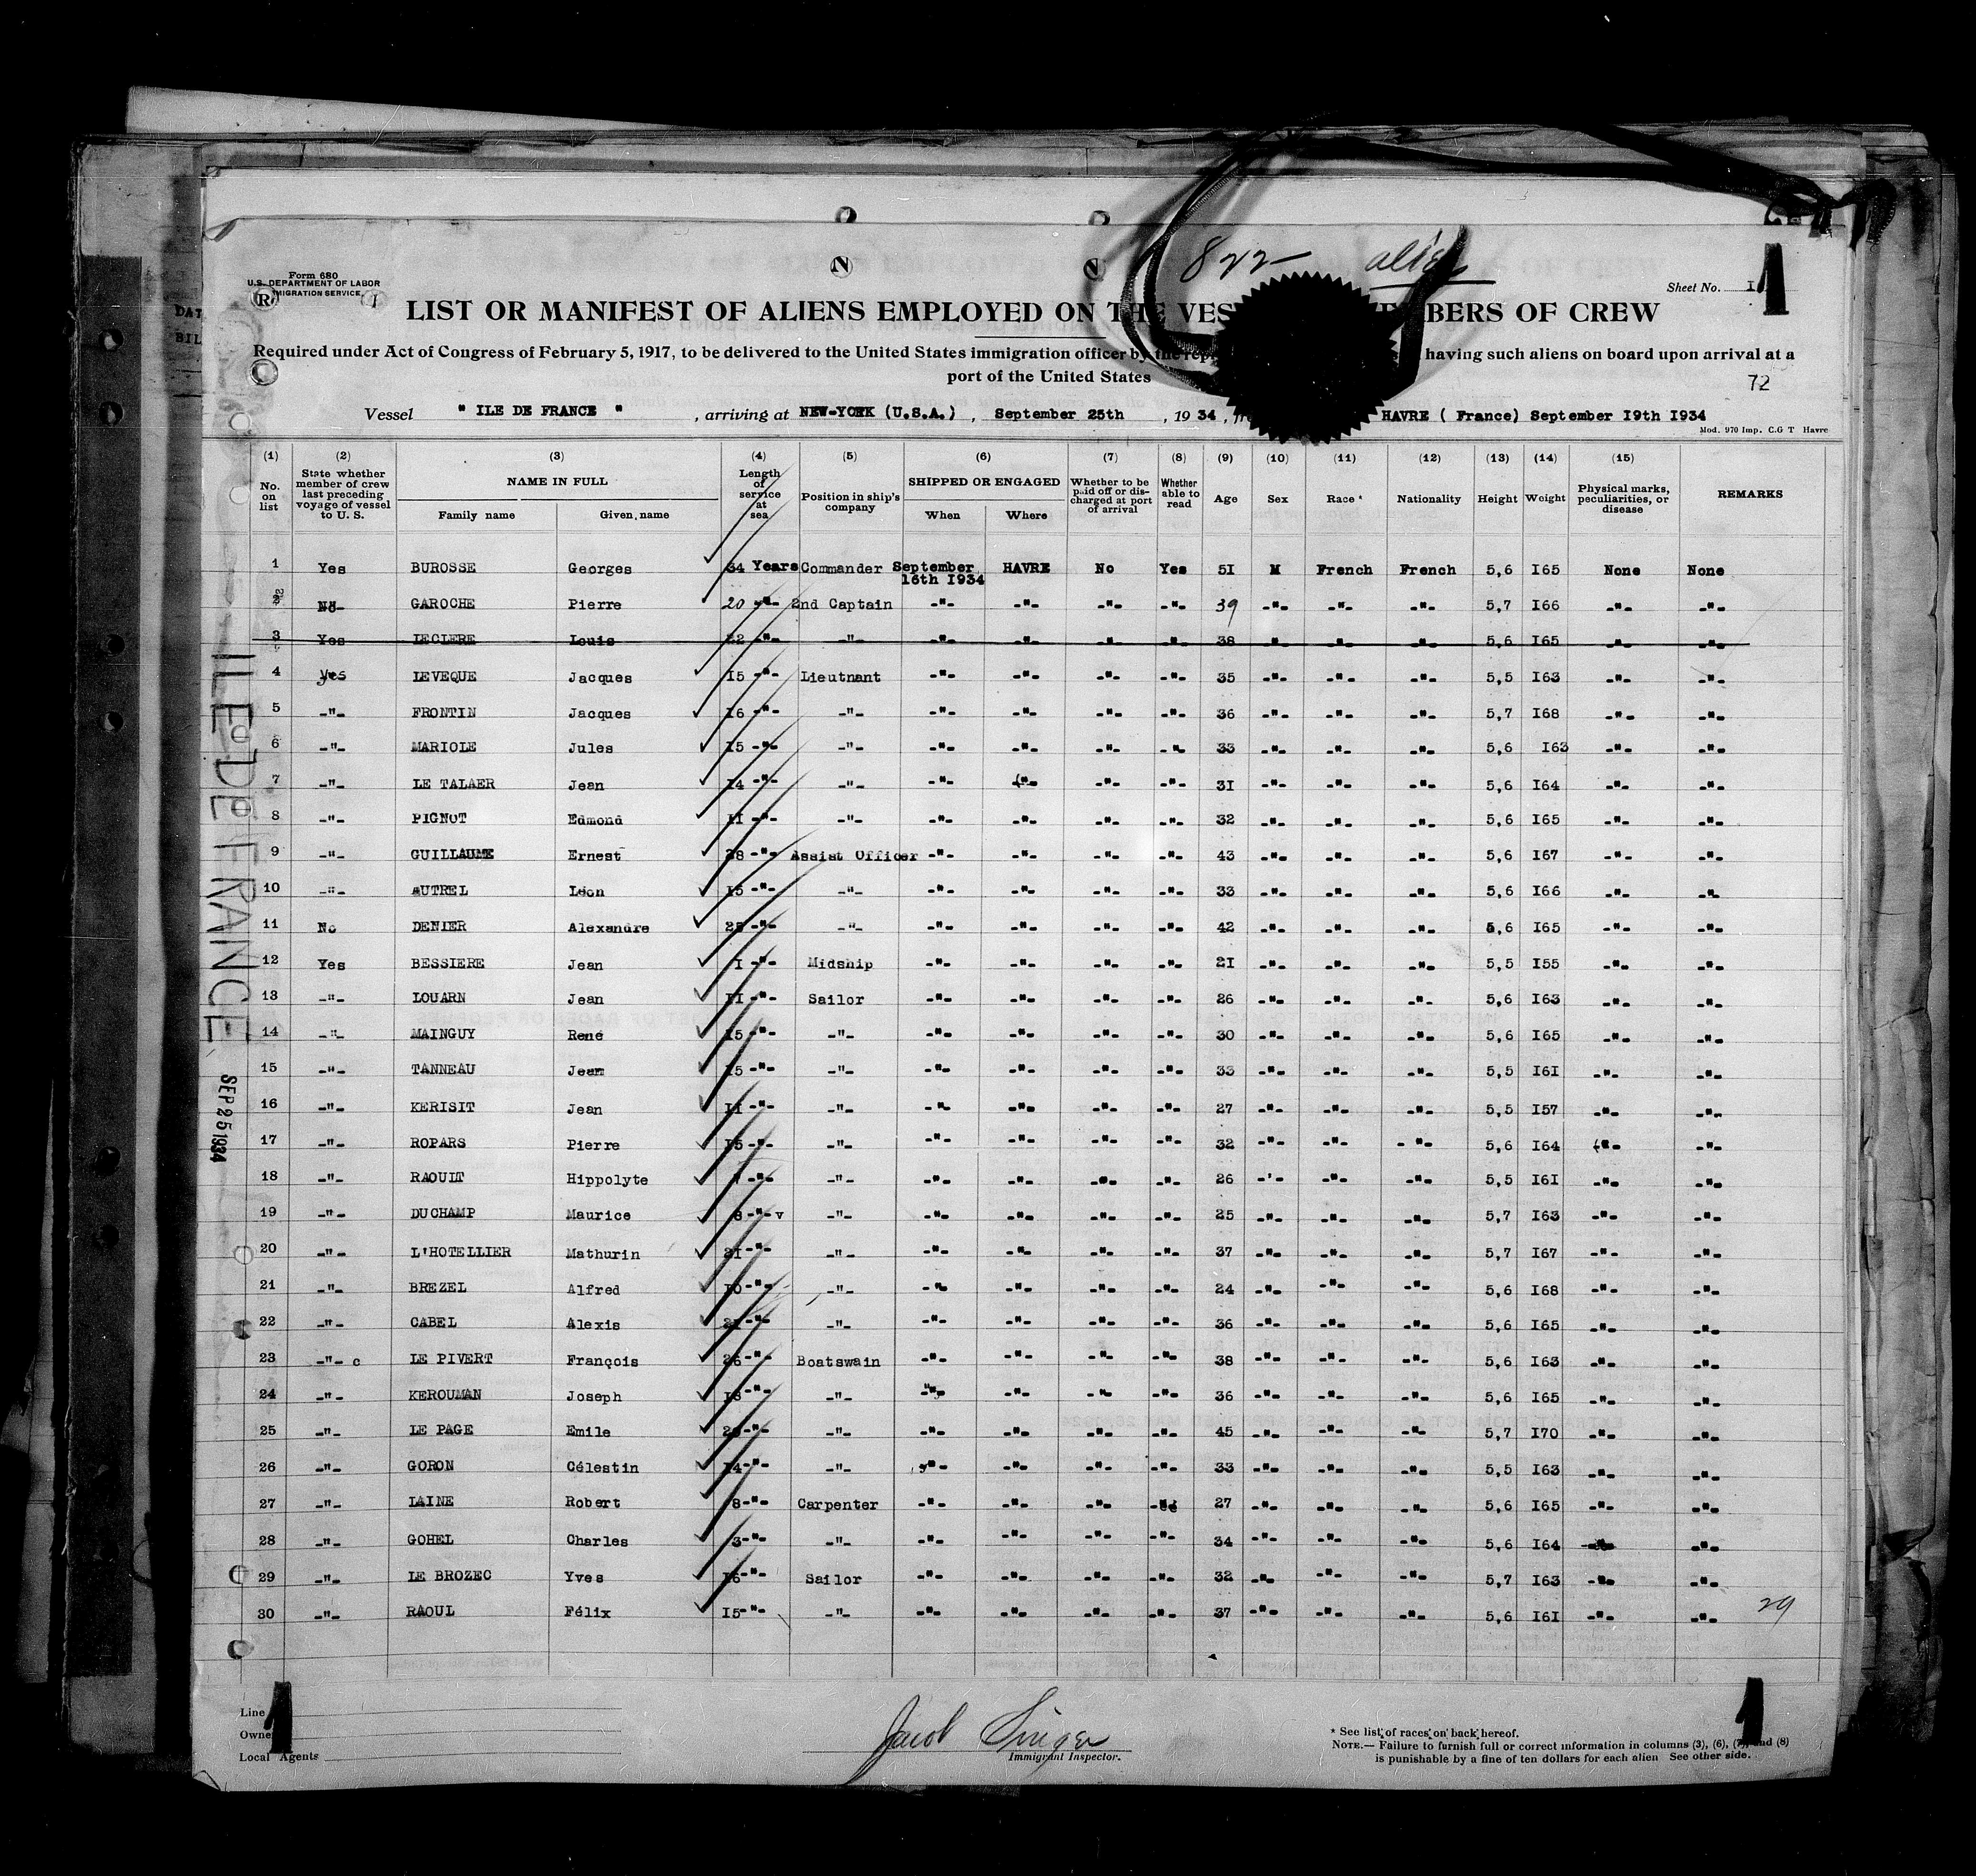 822 alien
Form 680
U.S. DEPARTMENT OF LABOR
MIGRATION SERVICE,
Sheet No. I
1
LIST OR MANIFEST OF ALIENS EMPLOYED ON THE VES BERS OF CREW
Required under Act of Congress of February 5, 1917, to be delivered to the United States immigration officer by the rep having such aliens on board upon arrival at a
port of the United States
72
Vessel " ILE DE FRANCE " , arriving at NEW-YORK (U.S.A.) , September 25th , 19 34 , HAVRE ( France) September I9th I934
Mod. 970 Imp. C.G T Havre
(1) (2) (3) (4) (5) (6) (7) (8) (9) (10) (11) (12) (13) (14) (15)
No. on list State whether member of crew last preceding voyage of vessel to U. S. NAME IN FULL Family name Given name Length of service at sea Position in ship's company SHIPPED OR ENGAGED When Where Whether to be paid off or discharged at port of arrival Whether able to read Age Sex Race * Nationality Height Weight Physical marks, peculiarities, or disease REMARKS
1 Yes BUROSSE Georges 34 Years Commander September I6th I934 HAVRE No Yes 5I M French French 5,6 I65 None None
2 No GAROCHE Pierre 20 -"- 2nd Captain -"- -"- -"- -"- 39 -"- -"- -"- 5,7 I66 -"- -"-
3 Yes LECLERE Louis 22 -"- -"- -"- -"- -"- -"- 38 -"- -"- -"- 5,6 I65 -"- -"-
4 yes LEVEQUE Jacques I5 -"- Lieutnant -"- -"- -"- -"- 35 -"- -"- -"- 5,5 I63 -"- -"-
5 -"- FRONTIN Jacques I6 -"- -"- -"- -"- -"- -"- 36 -"- -"- -"- 5,7 I68 -"- -"-
6 -"- MARIOLE Jules I5 -"- -"- -"- -"- -"- -"- 33 -"- -"- -"- 5,6 I63 -"- -"-
7 -"- LE TALAER Jean I4 -"- -"- -"- -"- -"- -"- 3I -"- -"- -"- 5,6 I64 -"- -"-
8 -"- PIGNOT Edmond II -"- -"- -"- -"- -"- -"- 32 -"- -"- -"- 5,6 I65 -"- -"-
9 -"- GUILLAUME Ernest 28 -"- Assist Officer -"- -"- -"- -"- 43 -"- -"- -"- 5,6 I67 -"- -"-
10 -"- AUTREL Léon I5 -"- -"- -"- -"- -"- -"- 33 -"- -"- -"- 5,6 I66 -"- -"-
11 No DENIER Alexandre -"- -"- -"- -"- -"- -"- 42 -"- -"- -"- 5,6 I65 -"- -"-
12 Yes BESSIERE Jean I -"- Midship -"- -"- -"- -"- 2I -"- -"- -"- 5,5 I55 -"- -"-
13 -"- LOUARN Jean II -"- Sailor -"- -"- -"- -"- 26 -"- -"- -"- 5,6 I63 -"- -"-
14 -"- MAINGUY René I5 -"- -"- -"- -"- -"- -"- 30 -"- -"- -"- 5,6 I65 -"- -"-
15 -"- TANNEAU Jean I5 -"- -"- -"- -"- -"- -"- 33 -"- -"- -"- 5,5 I6I -"- -"-
16 -"- KERISIT Jean II -"- -"- -"- -"- -"- -"- 27 -"- -"- -"- 5,5 I57 -"- -"-
17 -"- ROPARS Pierre I5 -"- -"- -"- -"- -"- -"- 32 -"- -"- -"- 5,6 I64 -"- -"-
18 -"- RAOULT Hippolyte -"- -"- -"- -"- -"- -"- 26 -"- -"- -"- 5,5 I6I -"- -"-
19 -"- DUCHAMP Maurice 8 -"- v -"- -"- -"- -"- -"- 25 -"- -"- -"- 5,7 I63 -"- -"-
20 -"- L'HOTELLIER Mathurin 2I -"- -"- -"- -"- -"- -"- 37 -"- -"- -"- 5,7 I67 -"- -"-
21 -"- BREZEL Alfred I0 -"- -"- -"- -"- -"- -"- 24 -"- -"- -"- 5,6 I68 -"- -"-
22 -"- CABEL Alexis 2I -"- -"- -"- -"- -"- -"- 36 -"- -"- -"- 5,6 I65 -"- -"-
23 -"- c LE PIVERT François 26 -"- Boatswain -"- -"- -"- -"- 38 -"- -"- -"- 5,6 I63 -"- -"-
24 -"- KEROUMAN Joseph I8 -"- -"- -"- -"- -"- -"- 36 -"- -"- -"- 5,6 I65 -"- -"-
25 -"- LE PAGE Emile -"- -"- -"- -"- -"- -"- 45 -"- -"- -"- 5,7 I70 -"- -"-
26 -"- GORON Célestin I4 -"- -"- -"- -"- -"- -"- 33 -"- -"- -"- 5,5 I63 -"- -"-
27 -"- LAINE Robert 8 -"- Carpenter -"- -"- -"- -"- 27 -"- -"- -"- 5,6 I65 -"- -"-
28 -"- GOHEL Charles 3 -"- -"- -"- -"- -"- -"- 34 -"- -"- -"- 5,6 I64 -"- -"-
29 -"- LE BROZEC Yves I6 -"- Sailor -"- -"- -"- -"- 32 -"- -"- -"- 5,7 I63 -"- -"-
30 -"- RAOUL Félix I5 -"- -"- -"- -"- -"- -"- 37 -"- -"- -"- 5,6 I6I -"- -"-
29
ILE DE FRANCE
SEP 25 1934
Line
Owne
Local Agents
1
Jacob Singer
Immigrant Inspector.
1
* See list of races on back hereof.
NOTE.— Failure to furnish full or correct information in columns (3), (6), (7), and (8)
is punishable by a fine of ten dollars for each alien See other side.